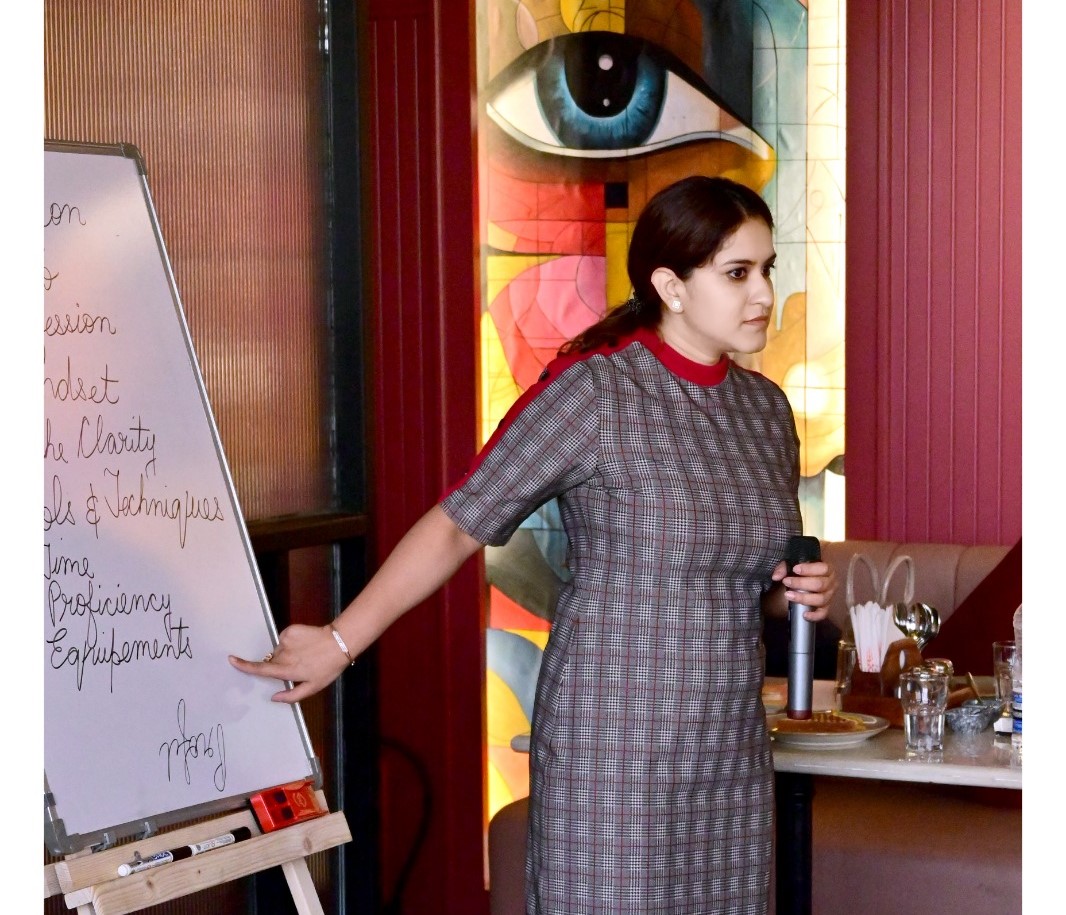 on
o
ession
ndset
he Clarity
ols & Techniques
Time
Proficiency
Equipements